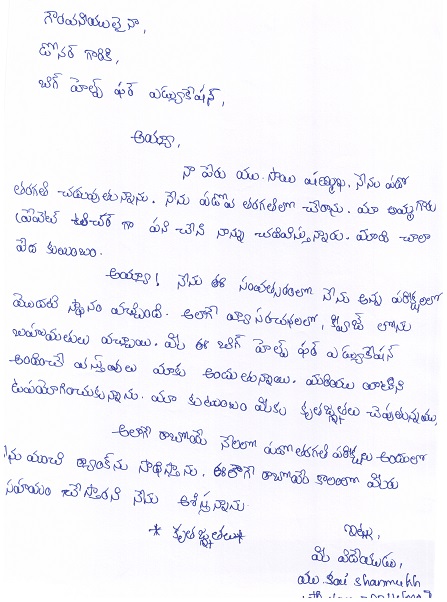 గౌరవనీయులైనా,
డోనర్ గారికి,
బిగ్ హెల్ప్ ఫర్ ఎడ్యుకేషన్,
అయ్యా,
నా పేరు యు. సాయి షణ్ముఖ. నేను పదో
తరగతి చదువుతున్నాను. నేను పదోవ తరగతిలో చేరాను. మా అమ్మగారు
ప్రైవేట్ టీచర్ గా పని చేసి నాన్ను చదివిస్తున్నారు. మాది చాలా
పేద కుటుంబం.
అయ్యా! నేను ఈ సంవత్సరంలో నేను అన్ని పరీక్షలలో
మొదటి స్థానం వచ్చింది. అలాగే వ్యాసరచనలలో, క్విజ్ లోను
బహుమతులు వచ్చాయి. మీ ఈ బిగ్ హెల్ప్ ఫర్ ఎడ్యుకేషన్
అందించే వస్తువులు మాకు అందుతున్నాయి. మరియు వాటిని
ఉపయోగించుకున్నాను. మా కుటుంబం మీకు కృతజ్ఞతలు చెపుతున్నాము,
అలాగే రాబోయే నెలలో పదోతరగతి పరీక్షలు అందులో
ను మంచి ర్యాంక్‌ను సాధిస్తాను. ఈలాగే రాబోయే కాలంలో మీరు
సహాయం చేస్తారని నేను ఆశిస్తున్నాను.
* కృతజ్ఞతలు*
ఇట్లు,
మీ విదేయుడు,
యు. sai shanmukh